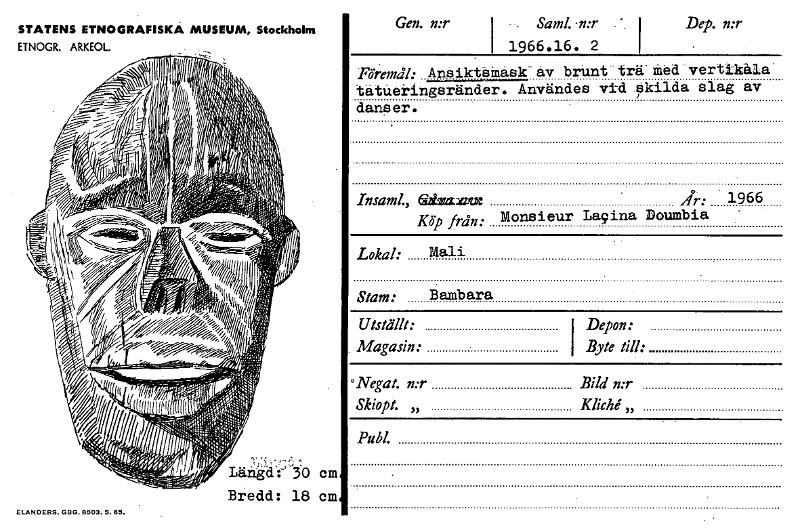 STATENS ETNOGRAFISKA MUSEUM, Stockholm
ETNOGR. ARKEOL.
Längd: 30 cm.
Bredd: 18 cm.
ELANDERS. GBG. 8503. 5. 65.
Gen. n:r Saml. n:r Dep. n:r
1966.16. 2
Föremål: Ansiktsmask av brunt trä med vertikala
tatueringsränder. Användes vid skilda slag av
danser.
Insaml., År: 1966
Köp från: Monsieur Laçina Doumbia
Lokal: Mali
Stam: Bambara
Utställt: Depon:
Magasin: Byte till:
Negat. n:r Bild n:r
Skiopt. „ Kliché „
Publ.